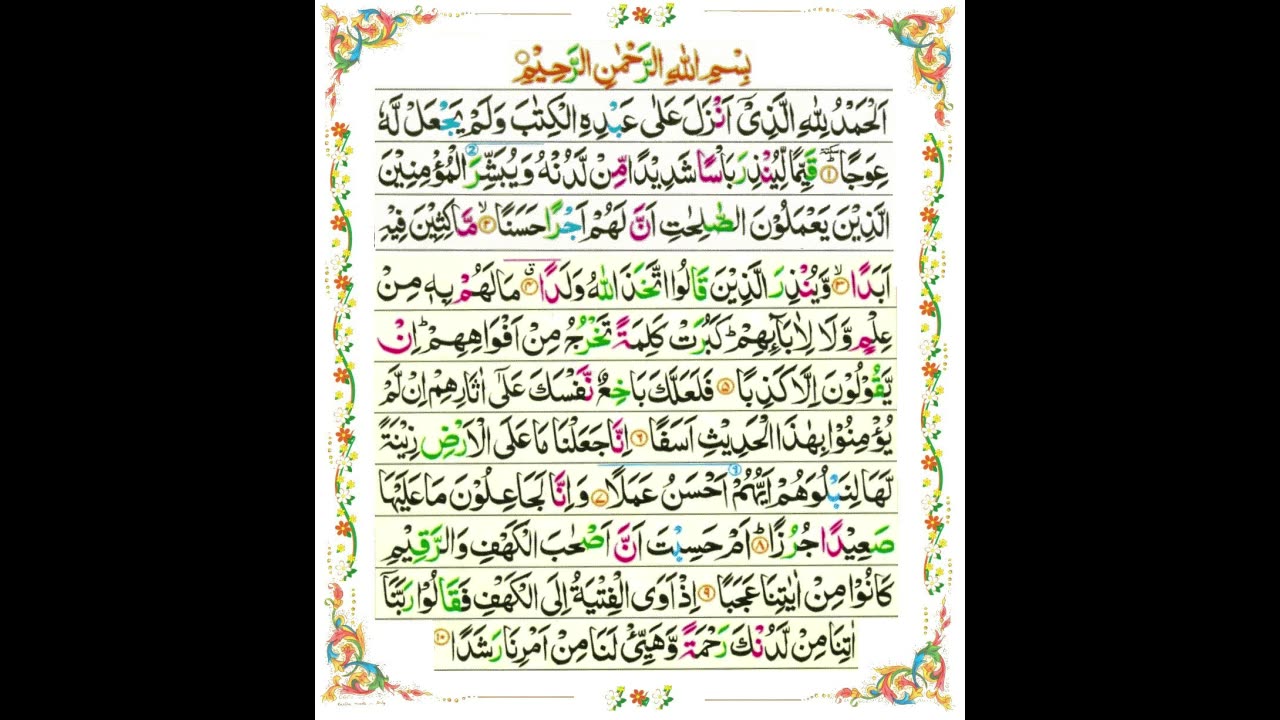 بِسْمِ اللهِ الرَّحْمٰنِ الرَّحِيْمِ
اَلْحَمْدُ لِلّٰهِ الَّذِىْٓ اَنْزَلَ عَلٰى عَبْدِهِ الْكِتٰبَ وَلَمْ يَجْعَلْ لَّهٗ
عِوَجًا ؕ ١ قَيِّمًا لِّيُنْذِرَ بَاْسًا شَدِيْدًا مِّنْ لَّدُنْهُ وَيُبَشِّرَ الْمُؤْمِنِيْنَ
الَّذِيْنَ يَعْمَلُوْنَ الصّٰلِحٰتِ اَنَّ لَهُمْ اَجْرًا حَسَنًا ۙ ٢ مَّاكِثِيْنَ فِيْهِ
اَبَدًا ۙ ٣ وَّيُنْذِرَ الَّذِيْنَ قَالُوا اتَّخَذَ اللهُ وَلَدًا ٤ مَا لَهُمْ بِهٖ مِنْ
عِلْمٍ وَّلَا لِاٰبَآئِهِمْ ؕ كَبُرَتْ كَلِمَةً تَخْرُجُ مِنْ اَفْوَاهِهِمْ ؕ اِنْ
يَّقُوْلُوْنَ اِلَّا كَذِبًا ٥ فَلَعَلَّكَ بَاخِعٌ نَّفْسَكَ عَلٰٓى اٰثَارِهِمْ اِنْ لَّمْ
يُؤْمِنُوْا بِهٰذَا الْحَدِيْثِ اَسَفًا ٦ اِنَّا جَعَلْنَا مَا عَلَى الْاَرْضِ زِيْنَةً
لَّهَا لِنَبْلُوَهُمْ اَيُّهُمْ اَحْسَنُ عَمَلًا ٧ وَاِنَّا لَجَاعِلُوْنَ مَا عَلَيْهَا
صَعِيْدًا جُرُزًا ؕ ٨ اَمْ حَسِبْتَ اَنَّ اَصْحٰبَ الْكَهْفِ وَالرَّقِيْمِ
كَانُوْا مِنْ اٰيٰتِنَا عَجَبًا ٩ اِذْ اَوَى الْفِتْيَةُ اِلَى الْكَهْفِ فَقَالُوْا رَبَّنَآ
اٰتِنَا مِنْ لَّدُنْكَ رَحْمَةً وَّهَيِّئْ لَنَا مِنْ اَمْرِنَا رَشَدًا ١٠